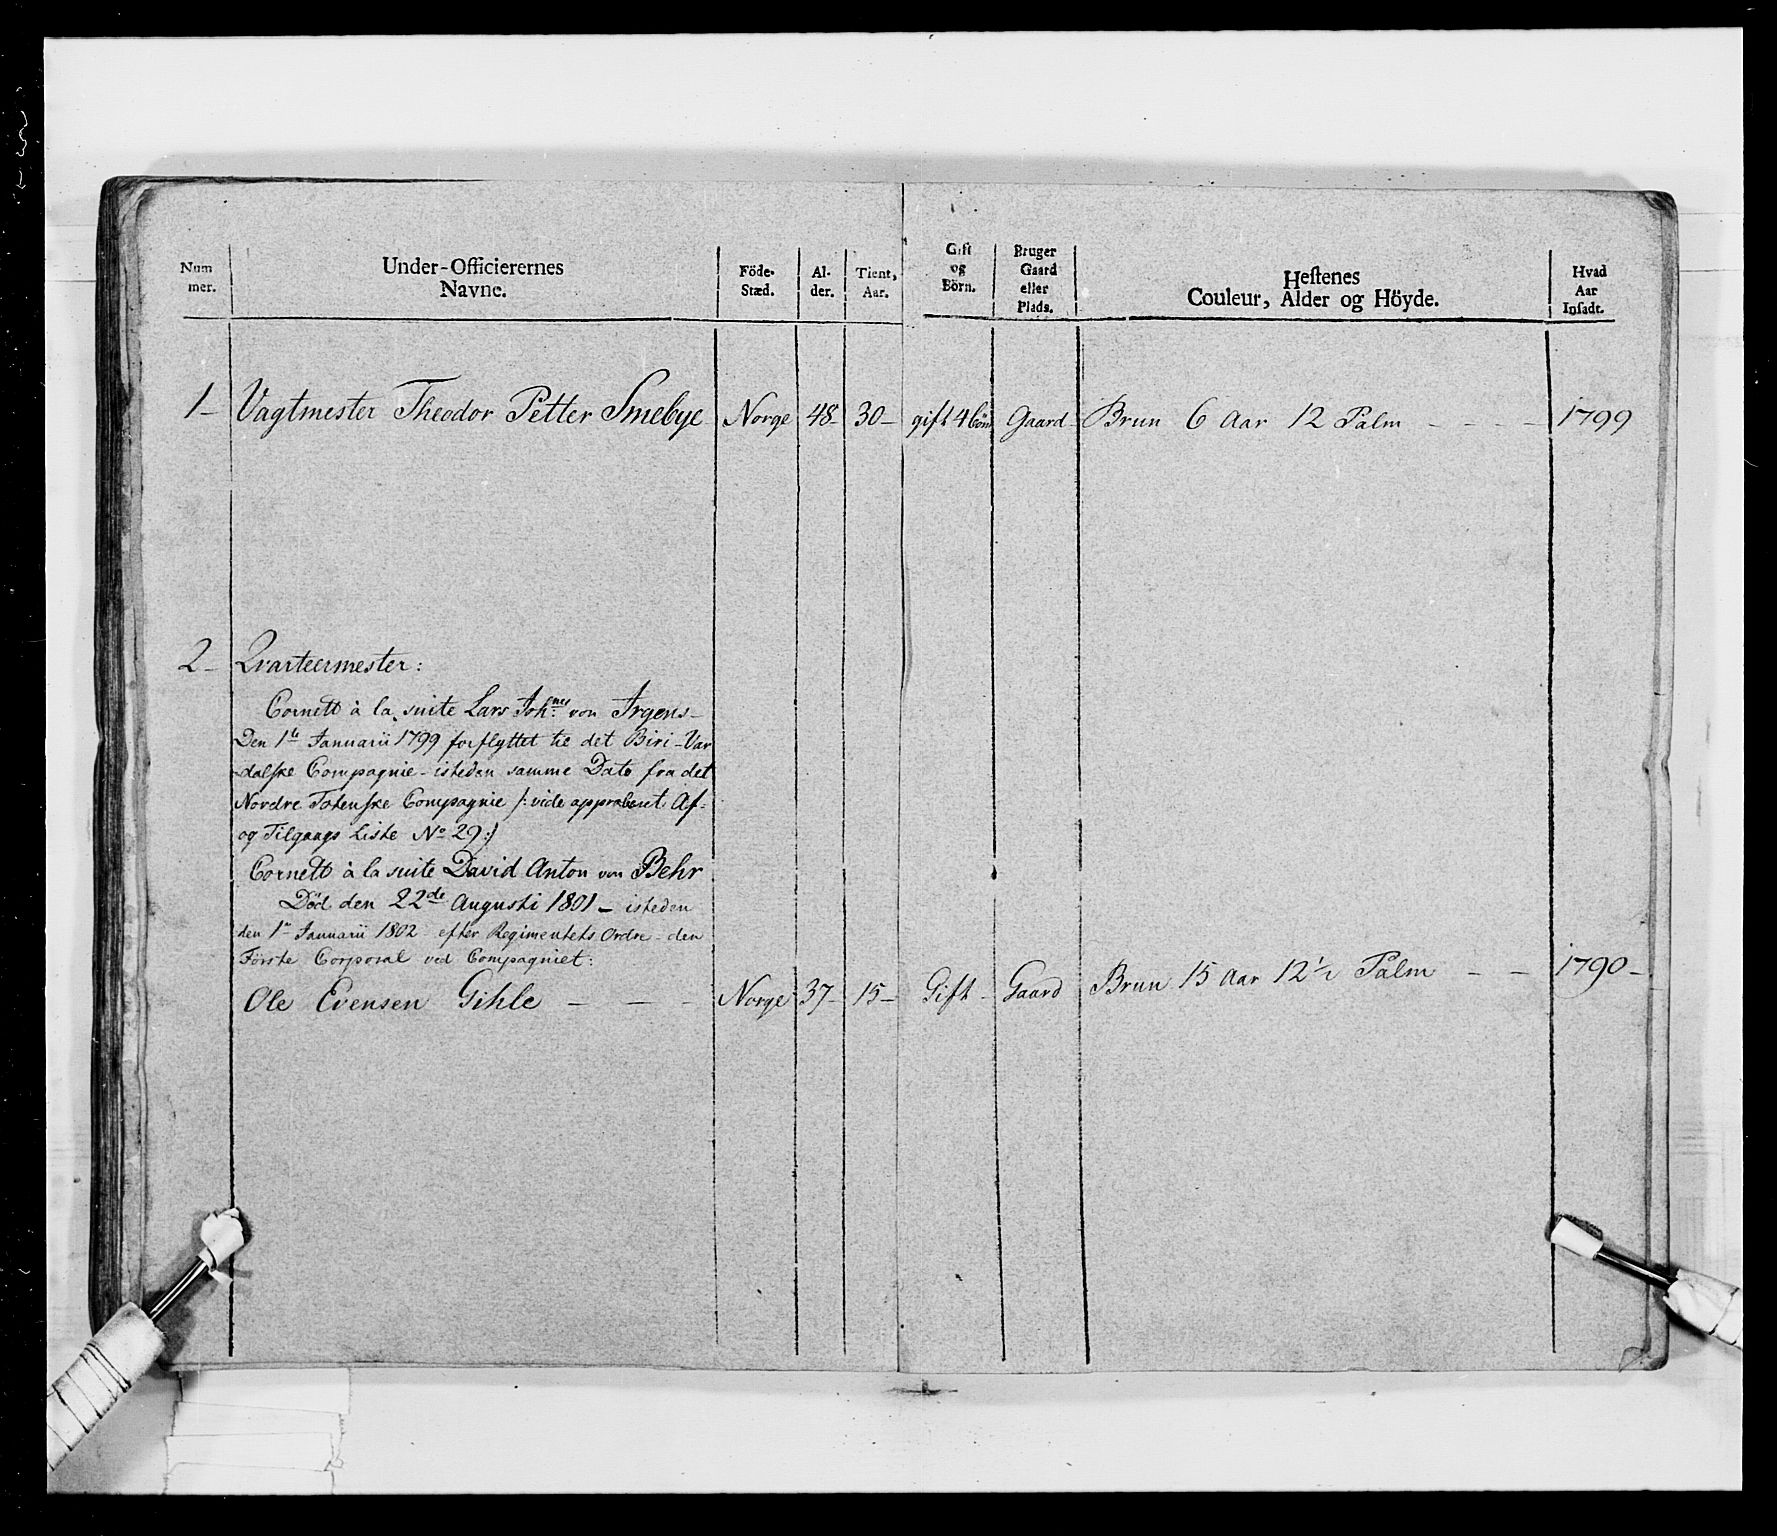 Num mer. | Under-Officierernes Navne. | Föde-Stæd. | Al-der. | Tient, Aar. | Gift og Börn. | Bruger Gaard eller Plads. | Heftenes Couleur, Alder og Höyde. | Hvad Aar Infadt.
1- Vagtmester Theodor Petter Smebye Norge 48- 30- gift 4 börn Gaard- Brun 6 Aar 12 Palm - - - - 1799
2- Qvarteermester:
Cornett à la suite Lars Joh:nes von Irgens-
Den 1te Januarii 1799 forflyttet til det Biri-Var
dalske Compagnie - isteden samme Dato fra det
Nordre Totenske Compagnie /: vide approberet Af-
og Tilgangs Liste No 29:/
Cornett à la suite David Anton von Behr
Död den 22de Augusti 1801 - isteden
den 1te Januarii 1802 efter Regimentets Ordre - den
Förste Corporal ved Compagniet:
Ole Evensen Gihle - - - Norge 37- 15- Gift - Gaard Brun 15 Aar 12½ Palm - - 1790-